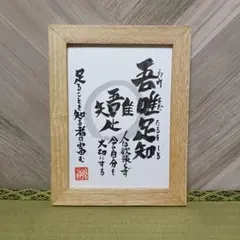 吾唯足知
われ ただ たるを しる
吾唯足知
人は欲張らず
今の自分を
大切にする
足ることを知る者は富む